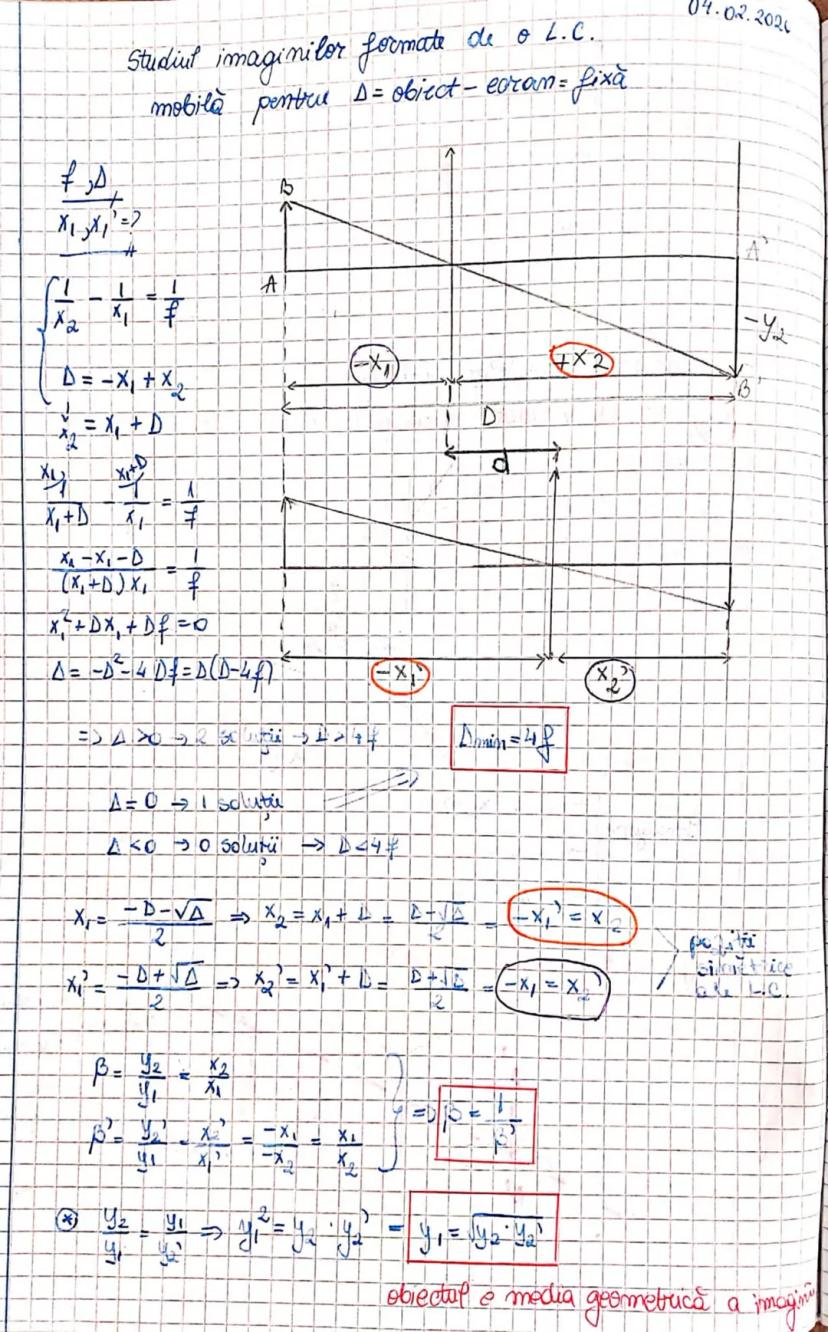 04.02.202
Studiul imaginilor formate de o L.C.
mobilă pentru Δ = obiect - ecran = fixă
f, D
x₁, x₁' = ?
1/x₂ - 1/x₁ = 1/f
D = -x₁ + x₂
x₂ = x₁ + D
x₁) 1/(x₁+D) - x₁+D) 1/x₁ = 1/f
(x₁ - x₁ - D)/((x₁+D)x₁) = 1/f
x₁² + Dx₁ + Df = 0
Δ = -D² - 4Df = D(D-4f)
B
A
A'
-y₂
B'
-x₁
+x₂
D
d
-x₁'
x₂'
=> Δ > 0 → 2 soluții → D > 4f
Dmin = 4f
Δ = 0 → 1 soluție
Δ < 0 → 0 soluții → D < 4f
x₁ = (-D-√Δ)/2 => x₂ = x₁ + D = (D-√Δ)/2 = -x₁' = x₂
x₁' = (-D+√Δ)/2 => x₂' = x₁' + D = (D+√Δ)/2 = -x₁ = x₂'
poziții
simetrice
ale L.C.
β = y₂/y₁ = x₂/x₁
β' = y₂'/y₁ = x₂'/x₁' = -x₁/-x₂ = x₁/x₂
=> β = 1/β'
* y₂/y₁ = y₁/y₂' => y₁² = y₂ · y₂' = y₁ = √(y₂ · y₂')
obiectul e media geometrică a